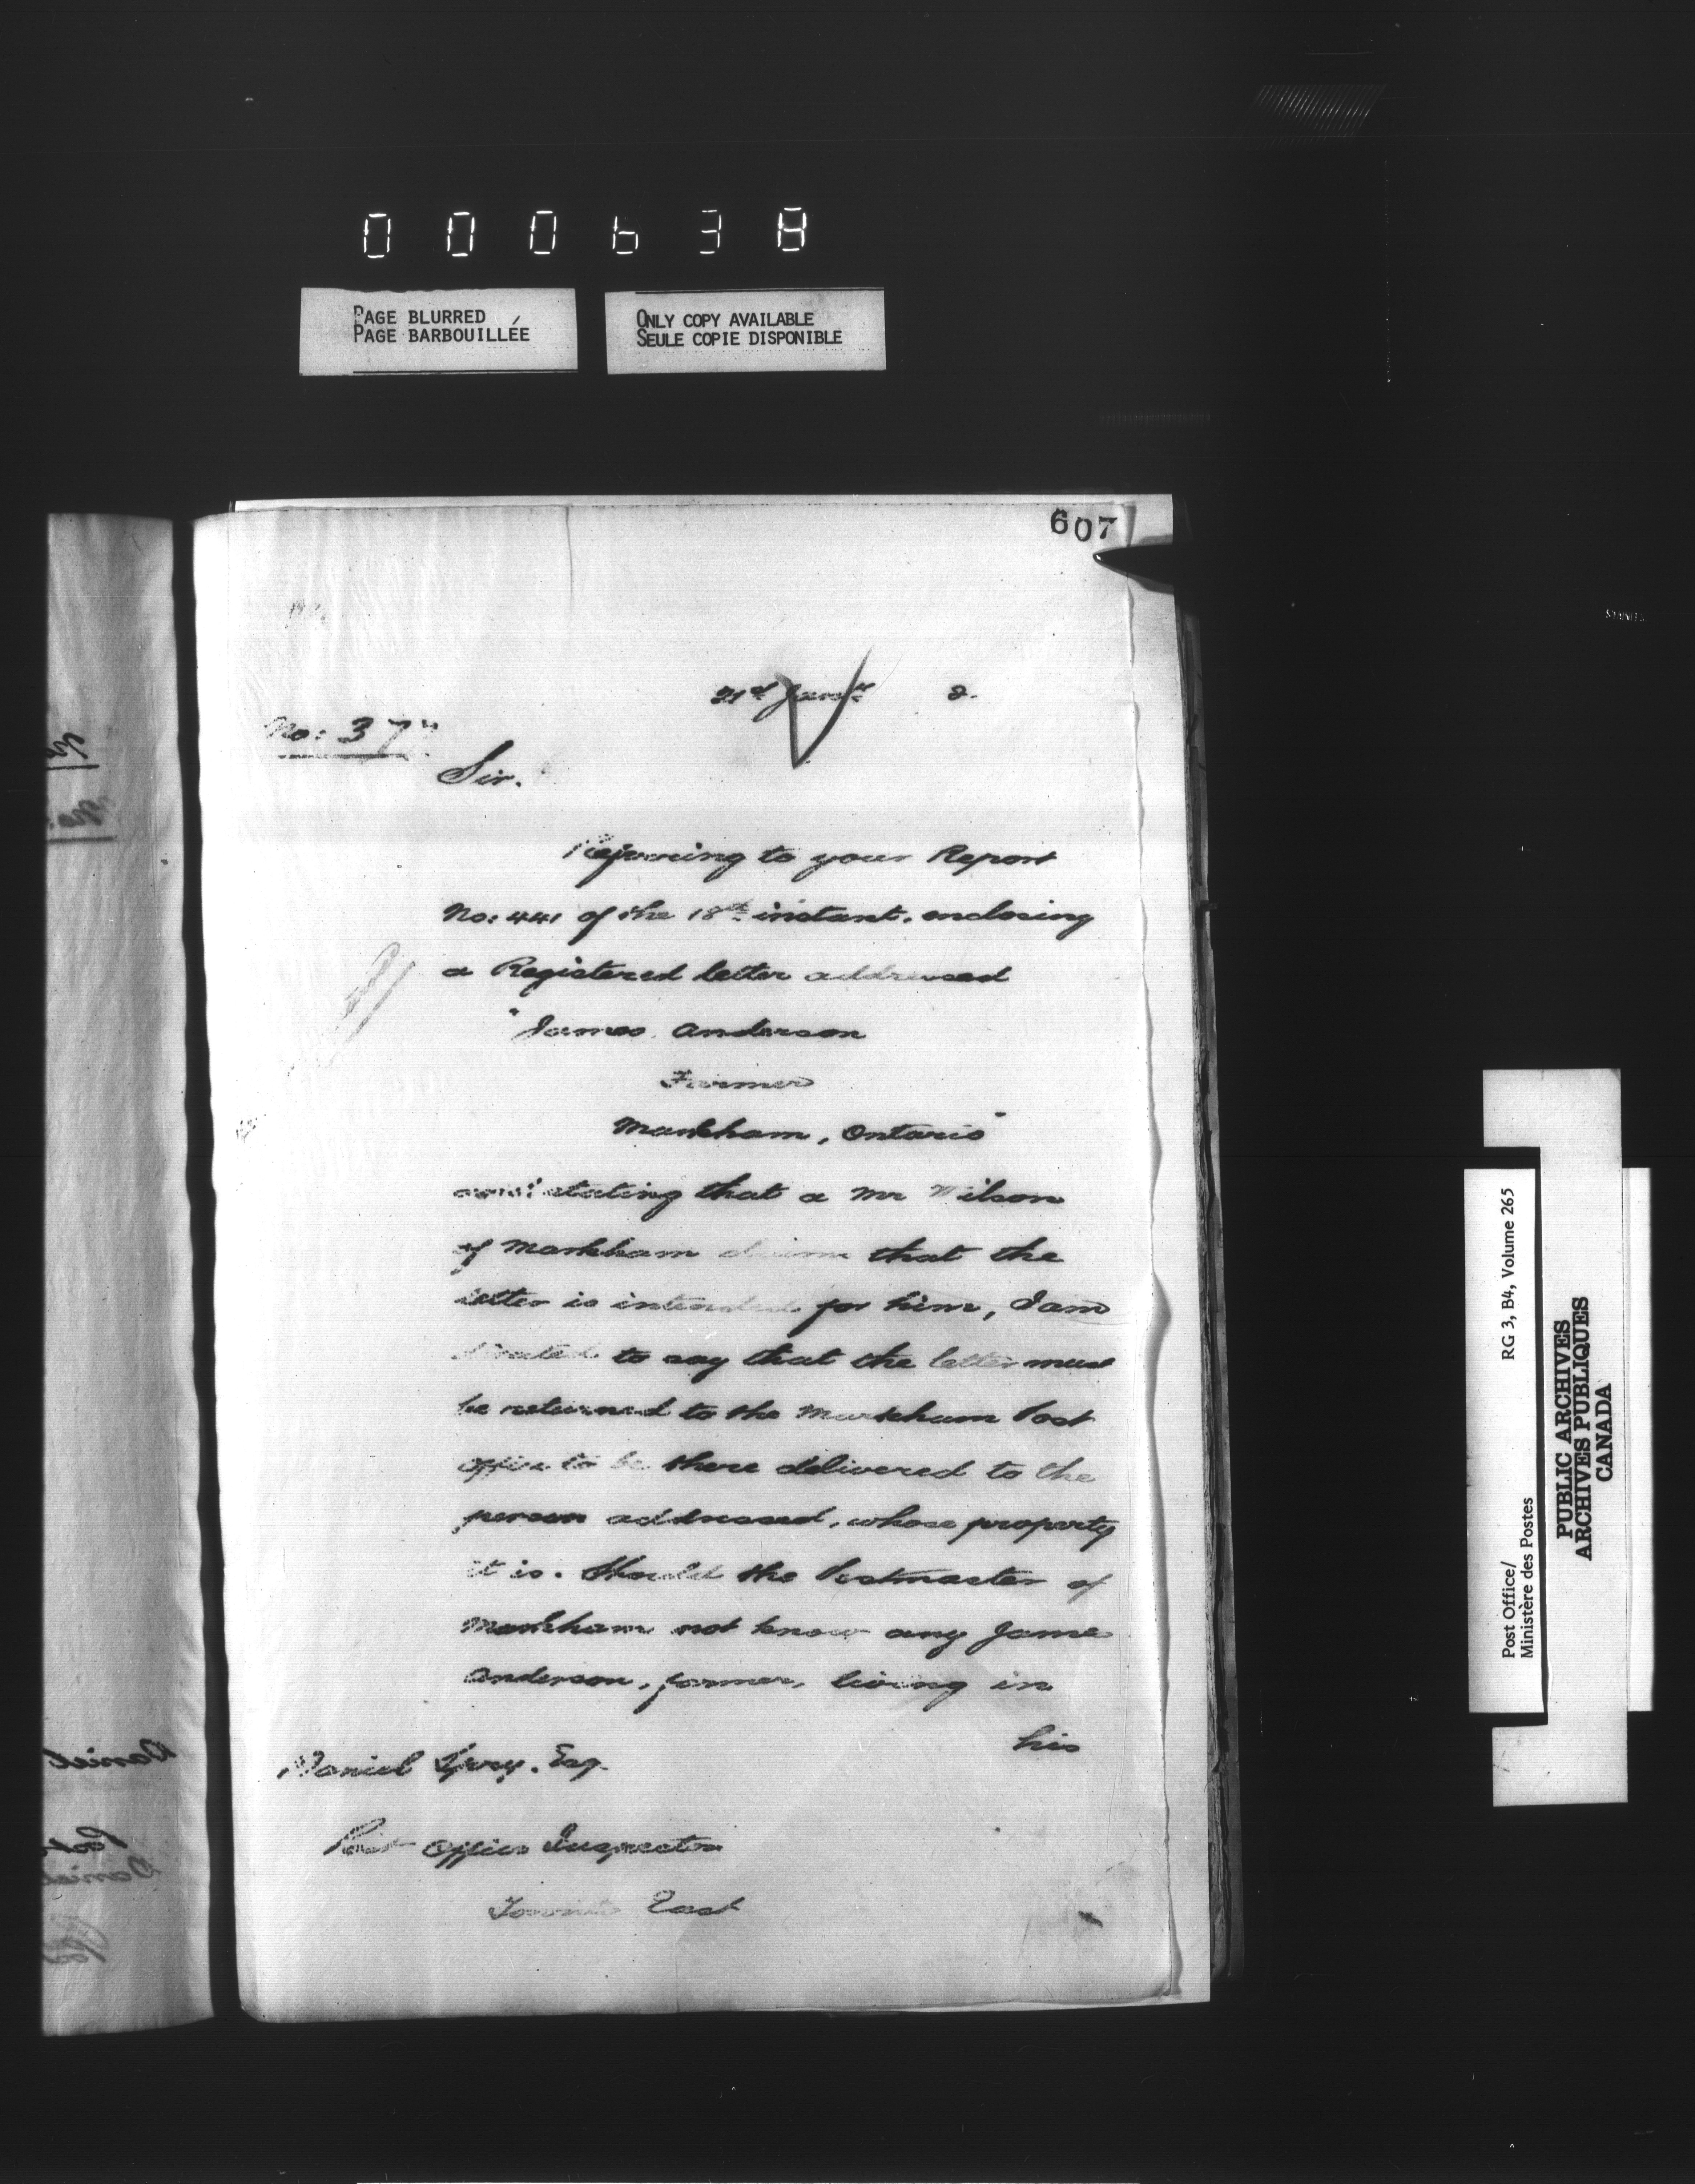 000638
PAGE BLURRED
PAGE BARBOUILLÉE
ONLY COPY AVAILABLE
SEULE COPIE DISPONIBLE
607
21st Jany 2.
No: 37
Sir.
Referring to your Report
No: 441 of the 18th instant, enclosing
a Registered letter addressed
"James Anderson
Farmer
Markham, Ontario"
and stating that a Mr Wilson
of Markham claims that the
letter is intended for him, I am
directed to say that the letter must
be returned to the Markham Post
Office to be there delivered to the
person addressed, whose property
it is. Should the Postmaster of
Markham not know any James
Anderson, farmer, living in
his
Daniel Spry, Esq.
Post Office Inspector
Toronto East
Post Office/
Ministère des Postes
RG 3, B4, Volume 265
PUBLIC ARCHIVES
ARCHIVES PUBLIQUES
CANADA